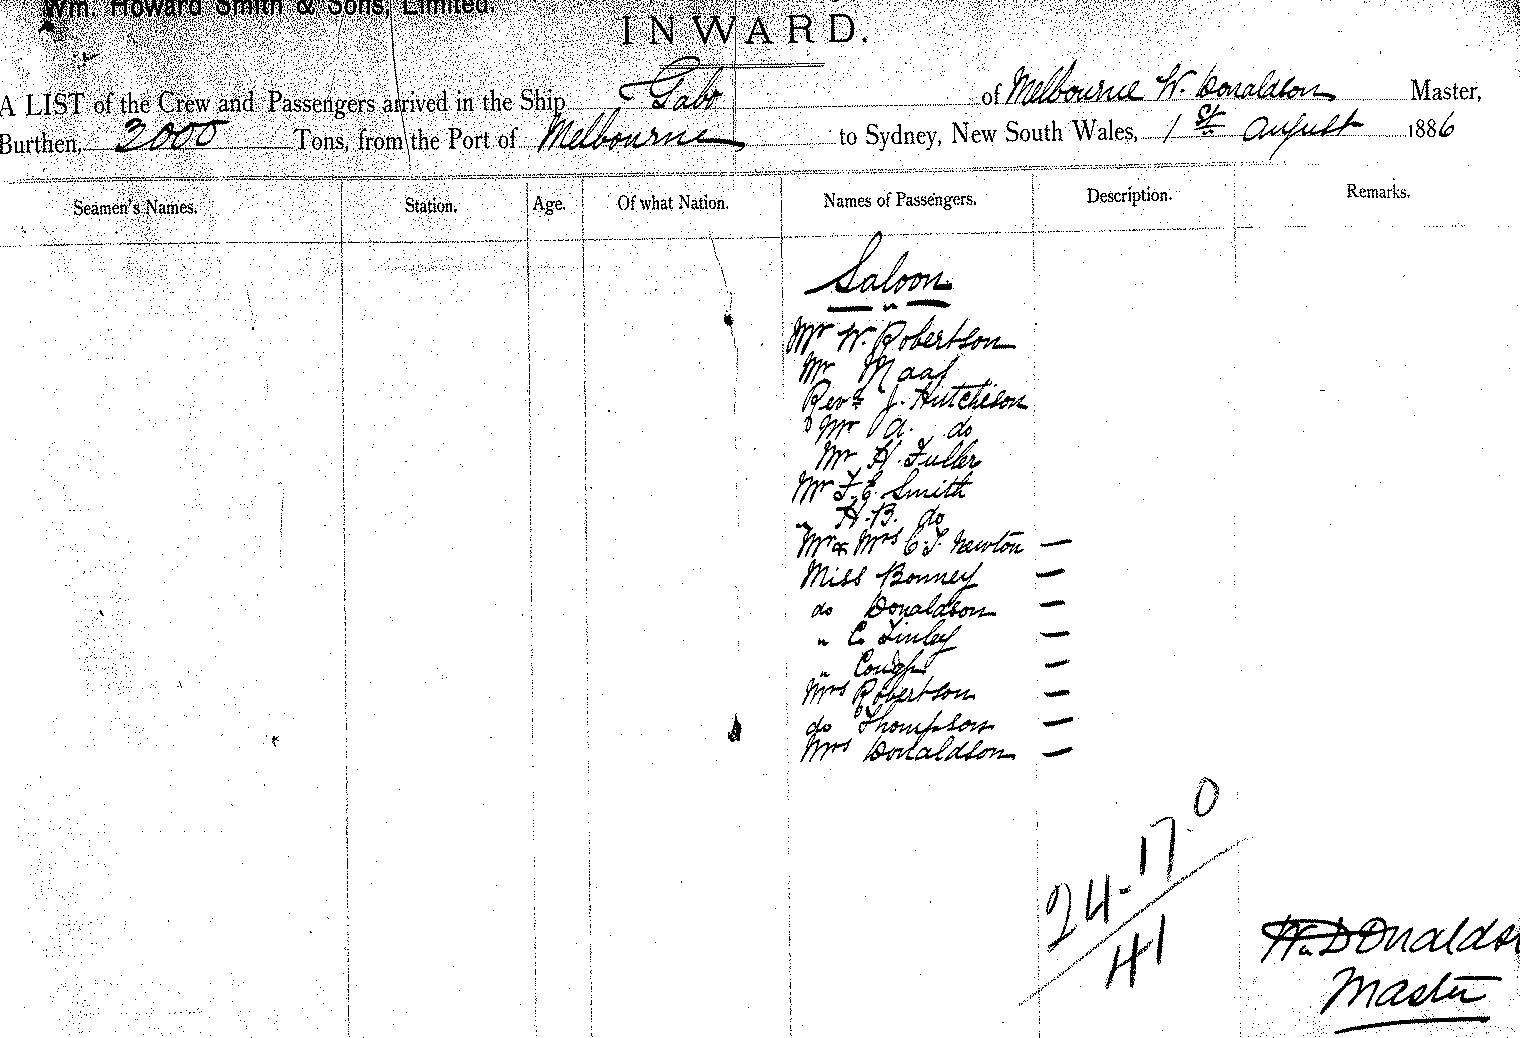 Wm. Howard Smith & Sons, Limited.
INWARD.
A LIST of the Crew and Passengers arrived in the Ship Gabo of Melbourne W. Donaldson Master,
Burthen, 2000 Tons, from the Port of Melbourne to Sydney, New South Wales, 1st August 1886
Seamen's Names. Station. Age. Of what Nation. Names of Passengers. Description. Remarks.
Saloon
Mr W. Robertson
Mr
Revd J. Hutchison
Mr A. do
Mr H. Fuller
Mr F. E. Smith
" H. B. do
Mr & Mrs C. T. Newton —
Miss Bonney —
do Donaldson —
" C. Finley —
" —
Mrs Robertson —
do Thompson —
Mrs Donaldson —
24-17.0
41
Wm Donaldso
Master